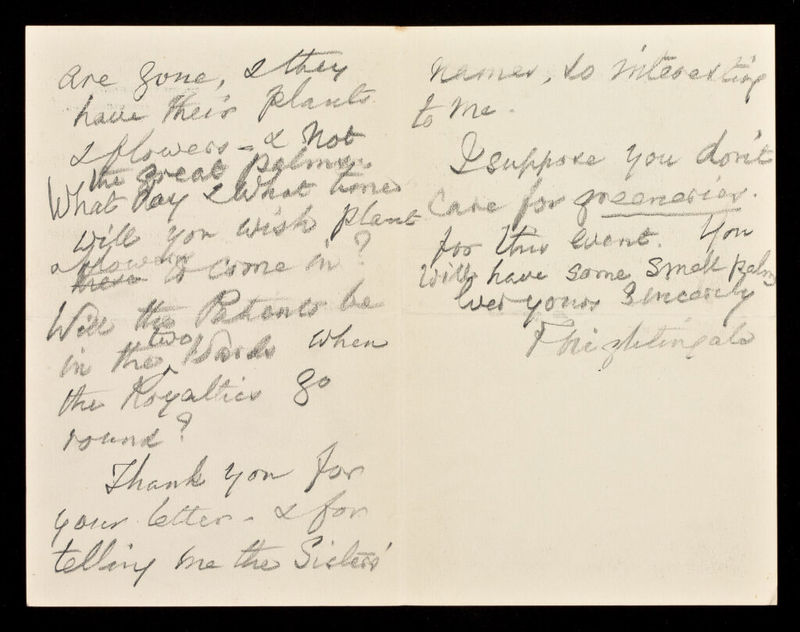 are gone, & they
have their plants
& flowers - & not
the great palms.
What day & What time
will you wish plant
& flowers
these to come in?
Will the Patients be
in the two Wards when
the Royalties go
round?
Thank you for
your letter - & for
telling me the Sisters'
names, so interesting
to me.
I suppose you don't
care for greeneries.
for this event. You
will have some small palms
ever yours Sincerely
F Nightingale